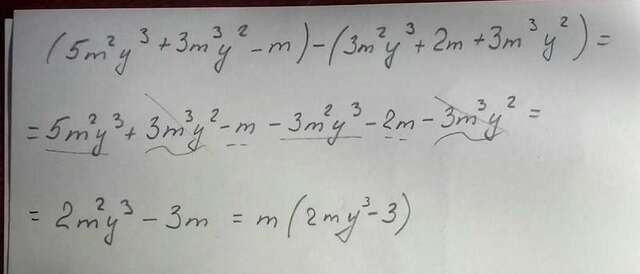 (5m²y³ + 3m³y² - m) - (3m²y³ + 2m + 3m³y²) =
= 5m²y³ + 3m³y² - m - 3m²y³ - 2m - 3m³y² =
= 2m²y³ - 3m = m(2my³ - 3)